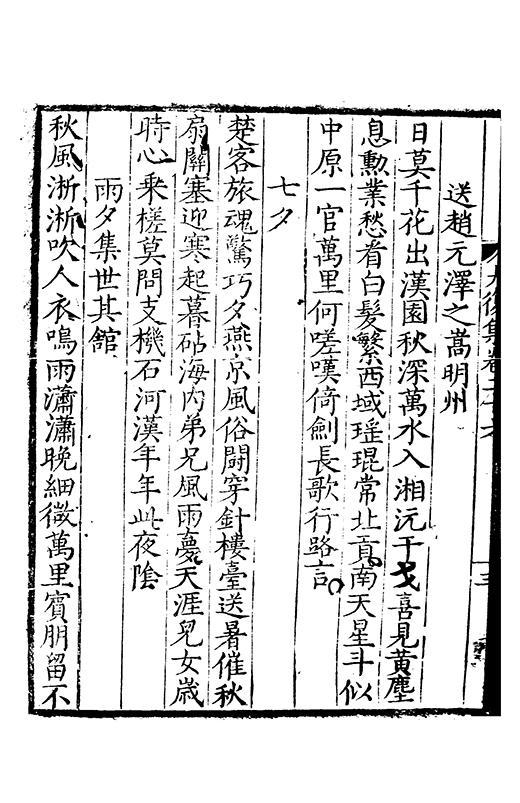 送趙元澤之嵩明州
日莫千花出漢園秋深萬水入湘沅干戈喜見黃塵
息勳業愁看白髮繁西域瑤琨常北貢南天星斗似
中原一官萬里何嗟嘆倚劍長歌行路言
七夕
楚客旅魂驚巧夕燕京風俗鬪穿針樓臺送暑催秋
扇關塞迎寒起暮砧海内弟兄風雨夢天涯兒女歲
時心乗槎莫問支機石河漢年年此夜陰
雨夕集世其館
秋風淅淅吹人衣鳴雨瀟瀟晚細微萬里賓朋留不